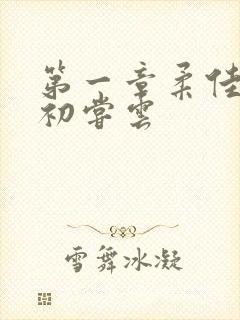 第一章柔佳
初尝云
雪舞冰凝